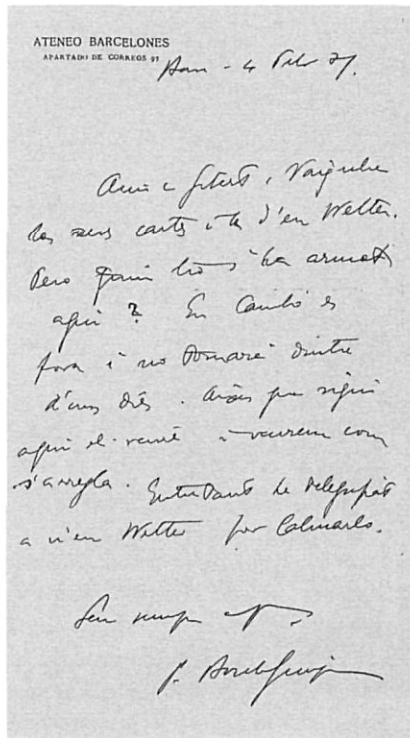 ATENEO BARCELONES
APARTADO DE CORREOS 91
4 Febr 27.
Amic Gibert, Vaig rebre
les seves cartes i la d'en Welter.
Pero quin lio s'ha armat
aqui? En Cambó es
fora i no tornará dintre
d'uns dies. Aixís que sigui
aqui el veuré i veurem com
s'arregla. Entretant he telegrafiat
a n'en Welter per calmarlo.
Seu sempre
J.